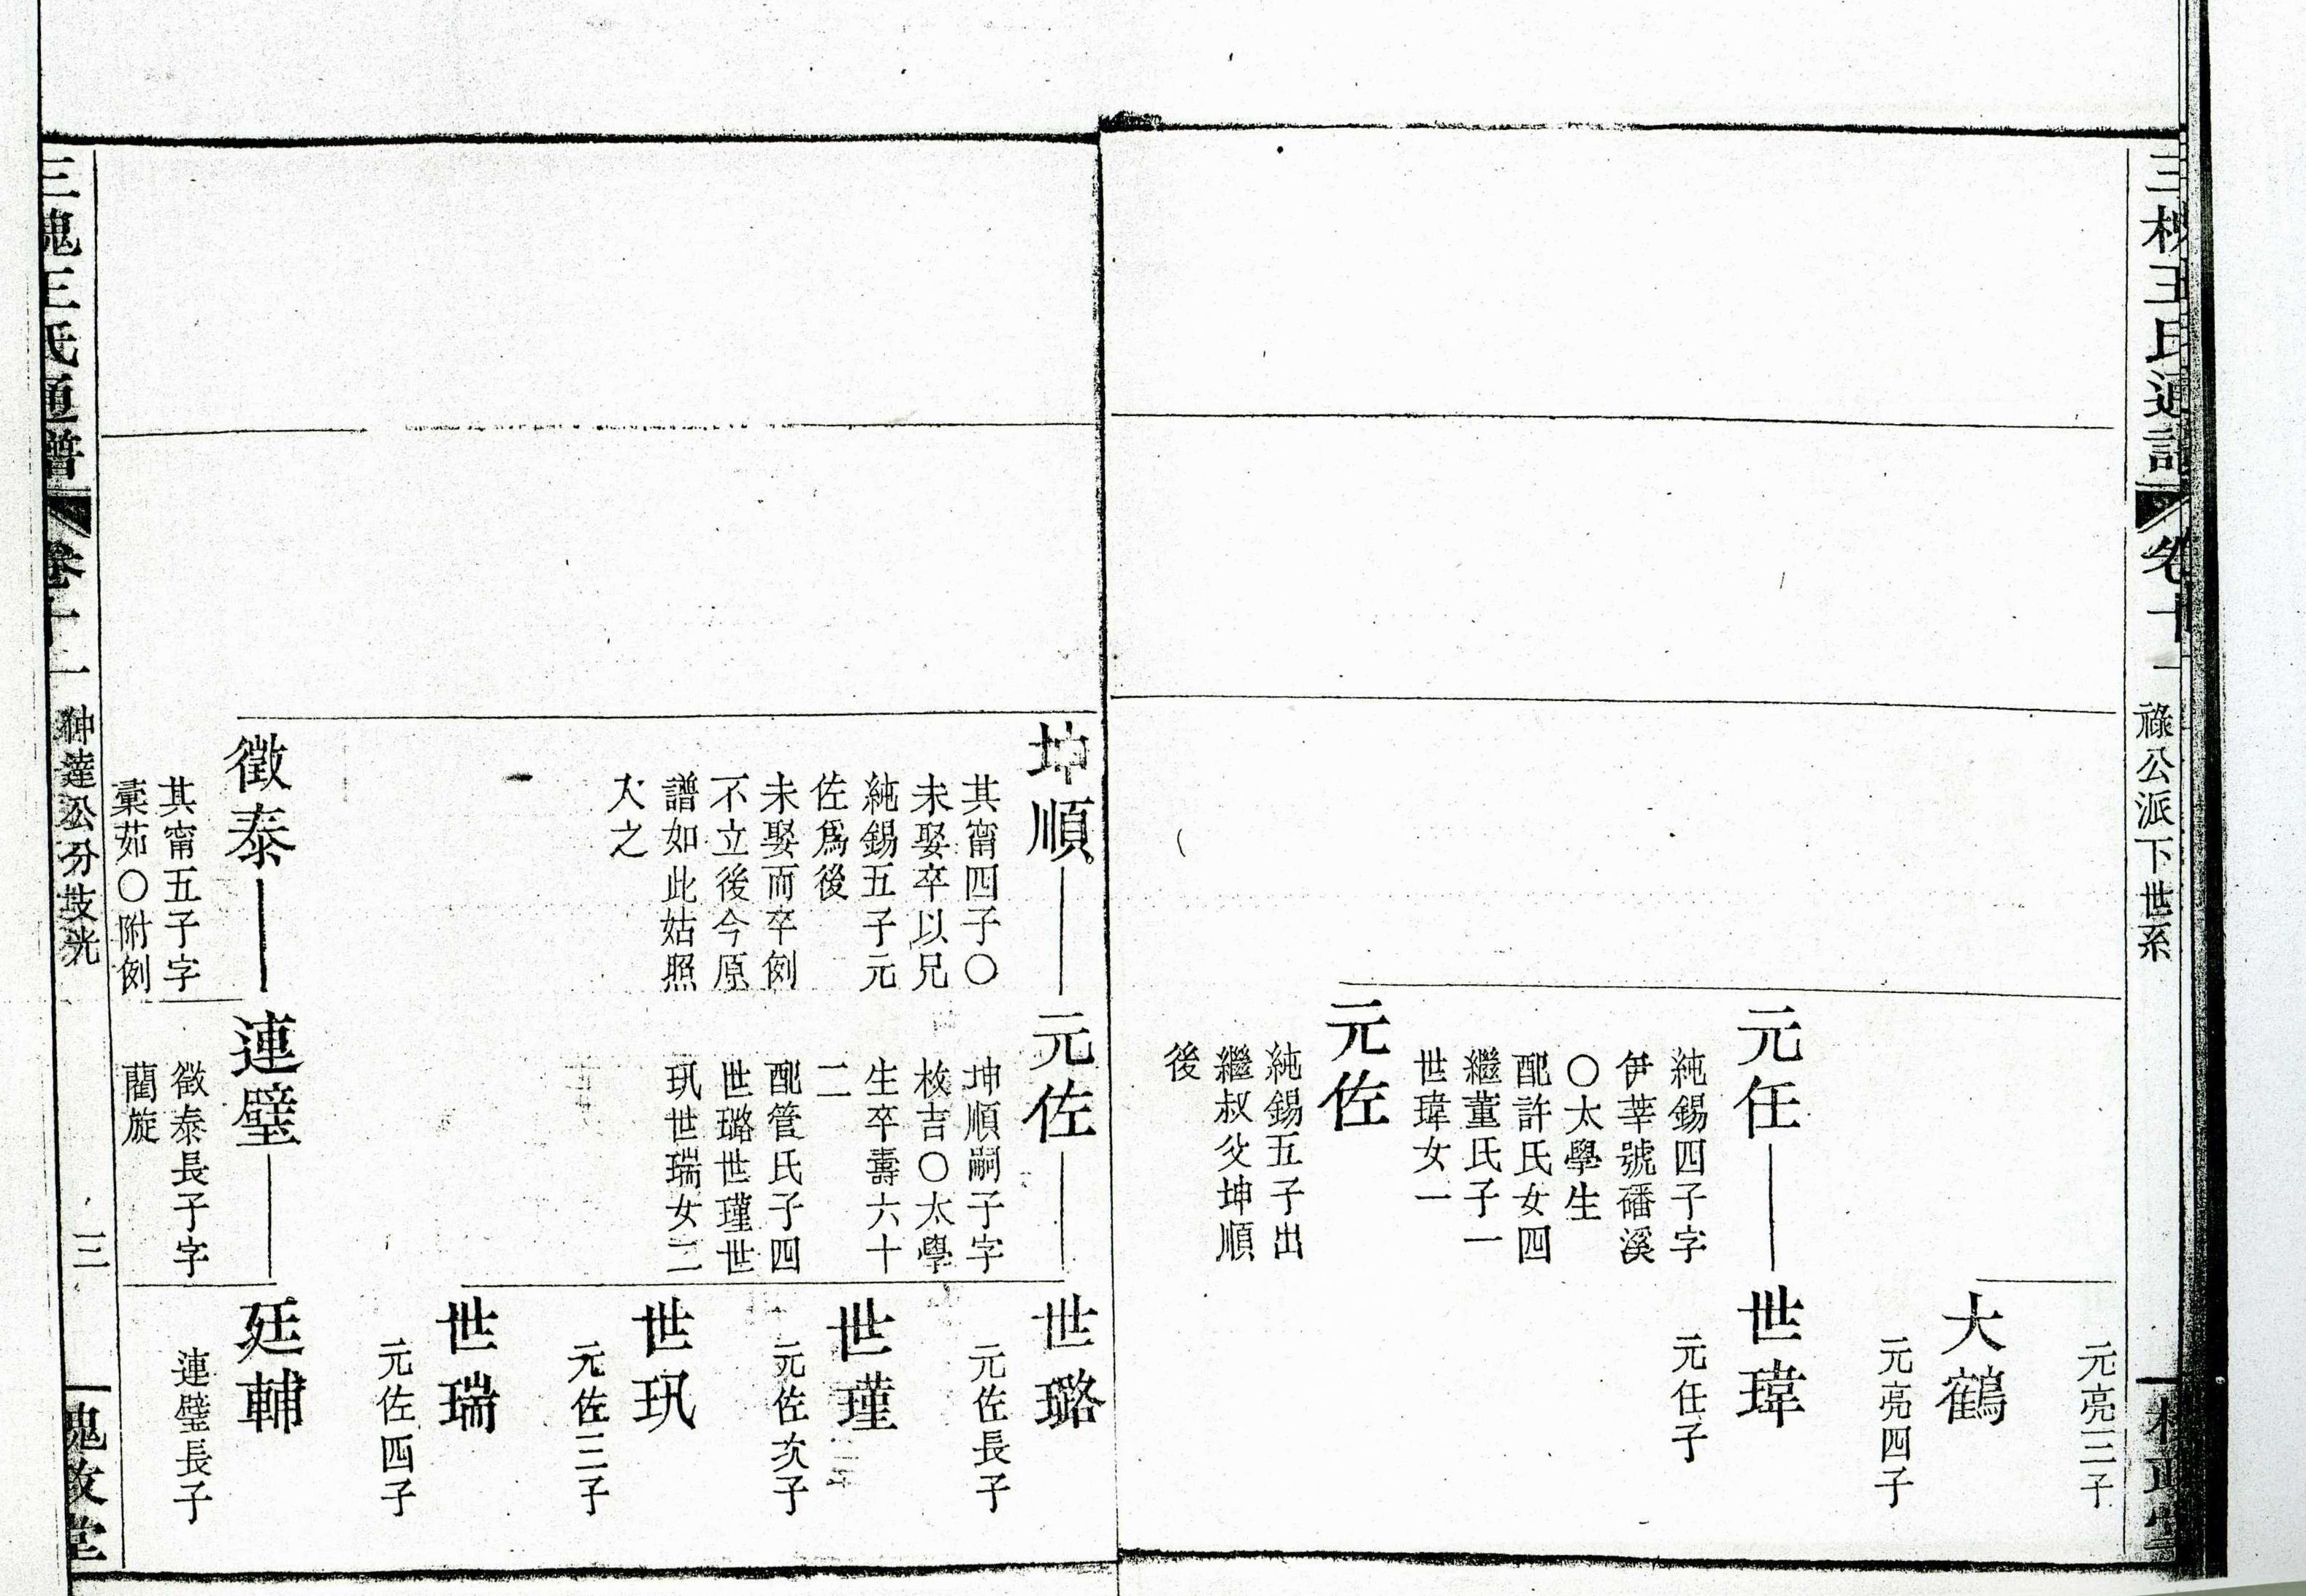 三槐王氏通譜
卷十一
祿公派下世系
槐政堂
元亮三子
大鶴
元亮四子
元任
純錫四子字
伊莘號磻溪
〇太學生
配許氏女四
繼董氏子一
世瑋女一
世瑋
元任子
元佐
純錫五子出
繼叔父坤順
後
坤順
其甯四子〇
未娶卒以兄
純錫五子元
佐爲後
未娶而卒例
不立後今原
譜如此姑照
之
元佐
坤順嗣子字
枚吉〇太學
生卒壽六十
二
配管氏子四
世璐世瑾世
玑世瑞女二
世璐
元佐長子
世瑾
元佐次子
世玑
元佐三子
世瑞
元佐四子
徵泰
其甯五子字
彙茹〇附例
連璧
徵泰長子字
藺旋
廷輔
連璧長子
三槐王氏通譜
卷十一
三
槐政堂